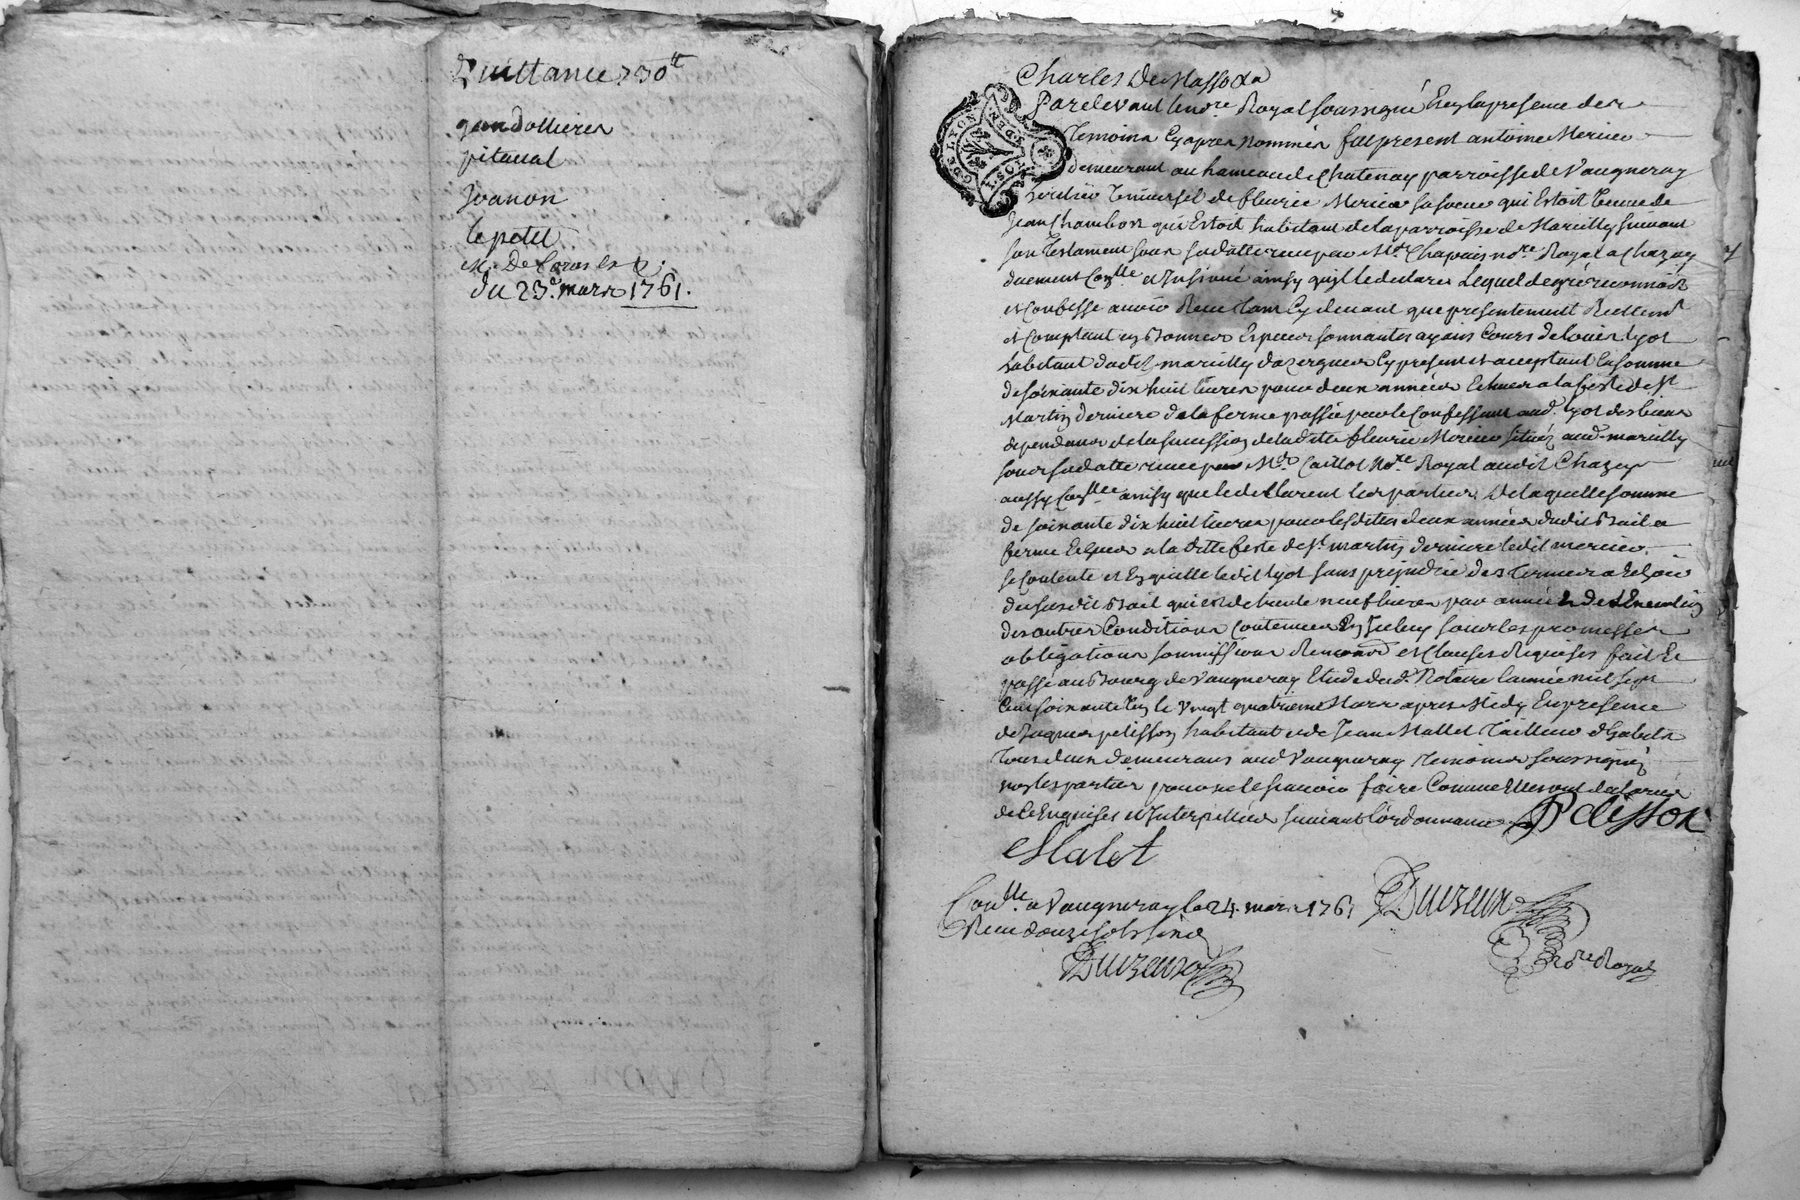 Quittance 230ᵗᵗ
gondollieres
pitaval
Joanon
le petit
du 23ᵉ. mars 1761.
Charles De Masso &a
G DE LYON
Pardevant le no.re Royal soussigné En la presence des
temoins Cy apres nommés fut present antoine Mercier
demeurant au hameau de Chatenay parroisse de Vaugneray
heritier Universel de fleurie Mercier sa soeur qui Estoit Veuve de
jean Chambon qui Estoit habitant de la parroisse de Marcilly suivant
son Testament sous sa datte receu par Me. Chapuis no.re Royal a Chazay
duement Con.llé et Insinué ainsy qu'il le declare Lequel de gré reconnoit
et Confesse avoir Receu tant Cy devant que presentement Reellem.t
et Comptant en Bonnes Especes sonnantes ayans Cours de Louis Lyot
habitant dudit marcilly dazergues Cy present et acceptant la somme
de soixante dix huit livres pour deux années Echues a la feste de St
Martin derniere de la ferme passée par le Confessant aud. Lyot des biens
dependans de la succession de la ditte fleurie Mercier situés aud. marcilly
sous sa datte receu par Me. Caillot No.re Royal audit Chazay
aussy Con.llée ainsy que le declarent les parties De laquelle somme
de soixante dix huit livres pour les dites deux années dudit Bail a
ferme Echues a la ditte feste de St. martin derniere ledit mercier
se Contente et En quitte ledit Lyot sans prejudice des termes a Echoir
du susdit Bail qui est de trente neuf livres par année & de l'Execution
des autres Conditions Contenues En Iceluy sous les promesses
obligations soumissions Renon.ons et Clauses Requises fait Et
passé au Bourg de Vaugneray Etude dud. Notaire l'année mil sept
Cent soixante Un le Vingt quatrieme Mars apres Midy En presence
de Jaques pelisson habitant et de Jean Mallet Tailleur d'habits
tous deux demeurans aud Vaugneray temoins soussignés
non les parties pour ne le scavoir faire Comme Elles ont declaré
de Ce Enquises et Interpellées suivant l'ordonnance Pelisson
Malet
Con.llé a Vaugneray le 24 mars 1761 Duizeux
Receu douze sols six d
Duizeux
No.re Royal